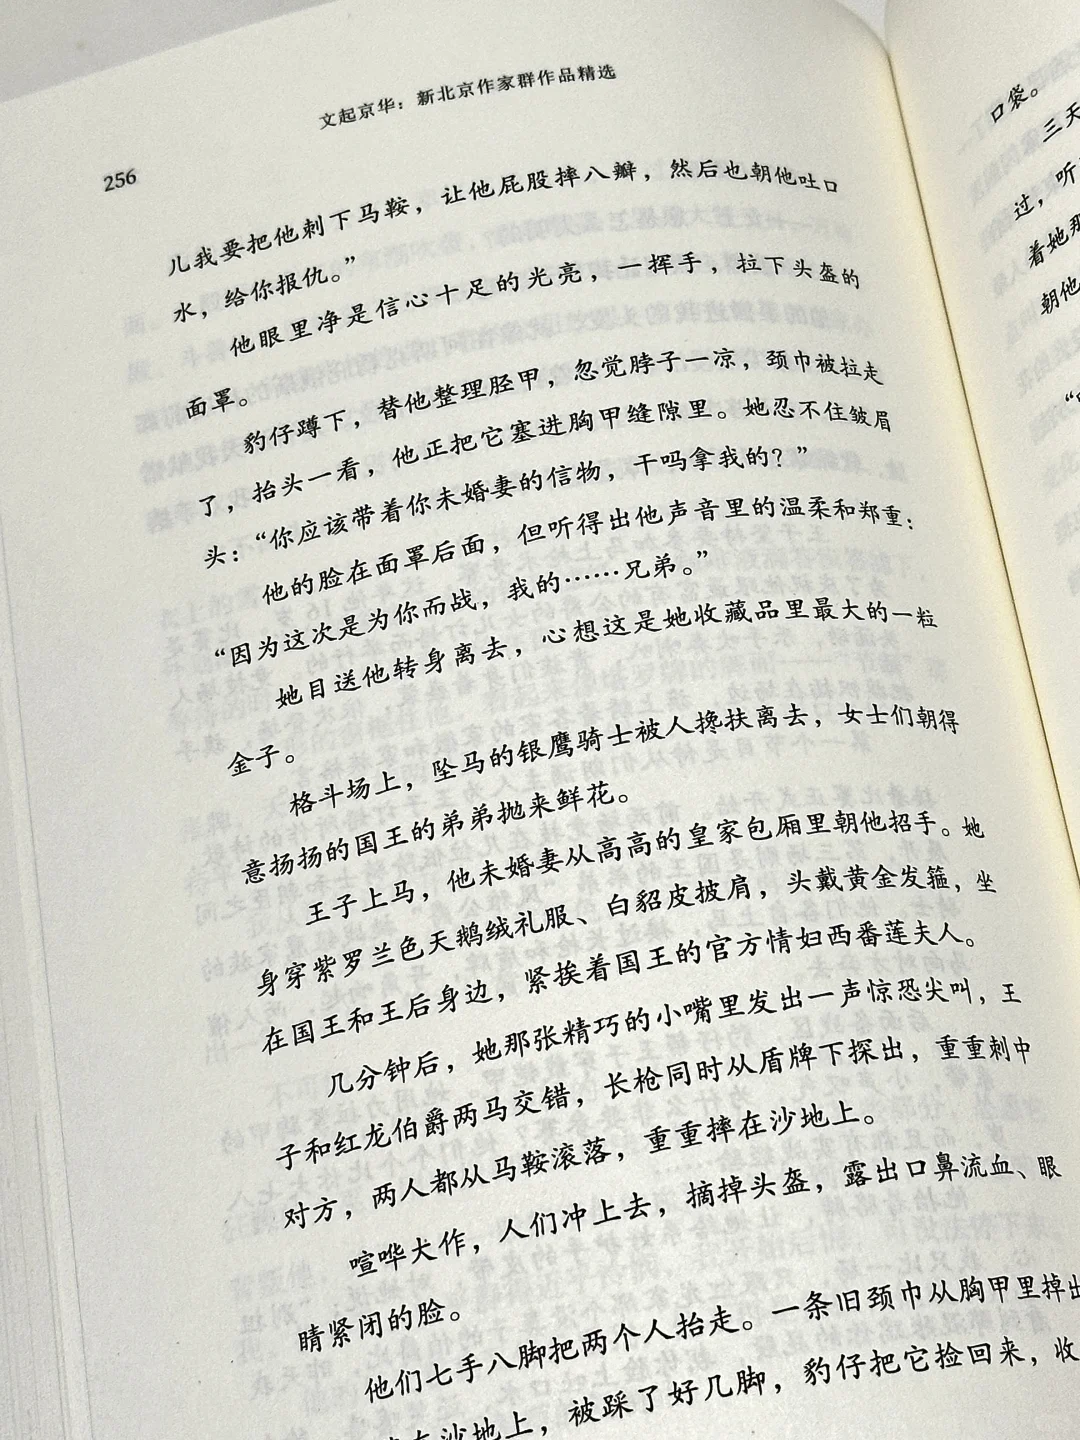 文起京华：新北京作家群作品精选
256
儿我要把他刺下马鞍，让他屁股摔八瓣，然后也朝他吐口
水，给你报仇。”
他眼里净是信心十足的光亮，一挥手，拉下头盔的
面罩。
豹仔蹲下，替他整理胫甲，忽觉脖子一凉，颈巾被拉走
了，抬头一看，他正把它塞进胸甲缝隙里。她忍不住皱眉
头：“你应该带着你未婚妻的信物，干吗拿我的？”
他的脸在面罩后面，但听得出他声音里的温柔和郑重：
“因为这次是为你而战，我的……兄弟。”
她目送他转身离去，心想这是她收藏品里最大的一粒
金子。
格斗场上，坠马的银鹰骑士被人搀扶离去，女士们朝得
意扬扬的国王的弟弟抛来鲜花。
王子上马，他未婚妻从高高的皇家包厢里朝他招手。她
身穿紫罗兰色天鹅绒礼服、白貂皮披肩，头戴黄金发箍，坐
在国王和王后身边，紧挨着国王的官方情妇西番莲夫人。
几分钟后，她那张精巧的小嘴里发出一声惊恐尖叫，王
子和红龙伯爵两马交错，长枪同时从盾牌下探出，重重刺中
对方，两人都从马鞍滚落，重重摔在沙地上。
喧哗大作，人们冲上去，摘掉头盔，露出口鼻流血、眼
睛紧闭的脸。
他们七手八脚把两个人抬走。一条旧颈巾从胸甲里掉出
在沙地上，被踩了好几脚，豹仔把它捡回来，收
口袋。
三天
过，听
着她那
朝他